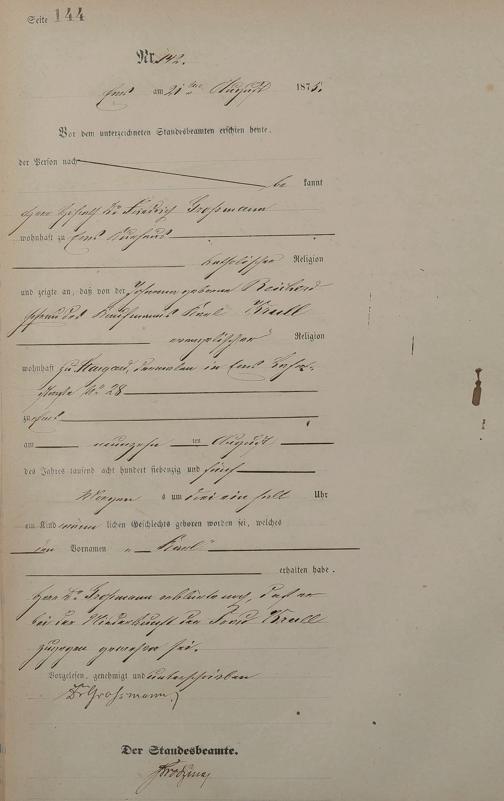 Seite 144
Nr. 142.
Ems am 21ten August 1875.
Vor dem unterzeichneten Standesbeamten erschien heute,
der Person nach
be kannt
Herr Dr. Friedrich Grossmann
wohnhaft zu Ems Kurhaus
katholischer Religion
und zeigte an, daß von der Johanna geborene
Ehefrau des Kaufmannes Karl Krull
evangelischer Religion
wohnhaft zu dermalen in Ems
straße No 28
zu Ems
am neunzehn ten August
des Jahrs tausend acht hundert siebenzig und fünf
Morgen s um drei ein halb Uhr
ein Kind männ lichen Geschlechts geboren worden sei, welches
den Vornamen „Karl“
erhalten habe.
Herr Dr. Grossmann erklärte noch, daß er
bei der Niederkunft der Frau Krull
zugegen gewesen sei.
Vorgelesen, genehmigt und unterschrieben
Dr Grossmann
Der Standesbeamte.